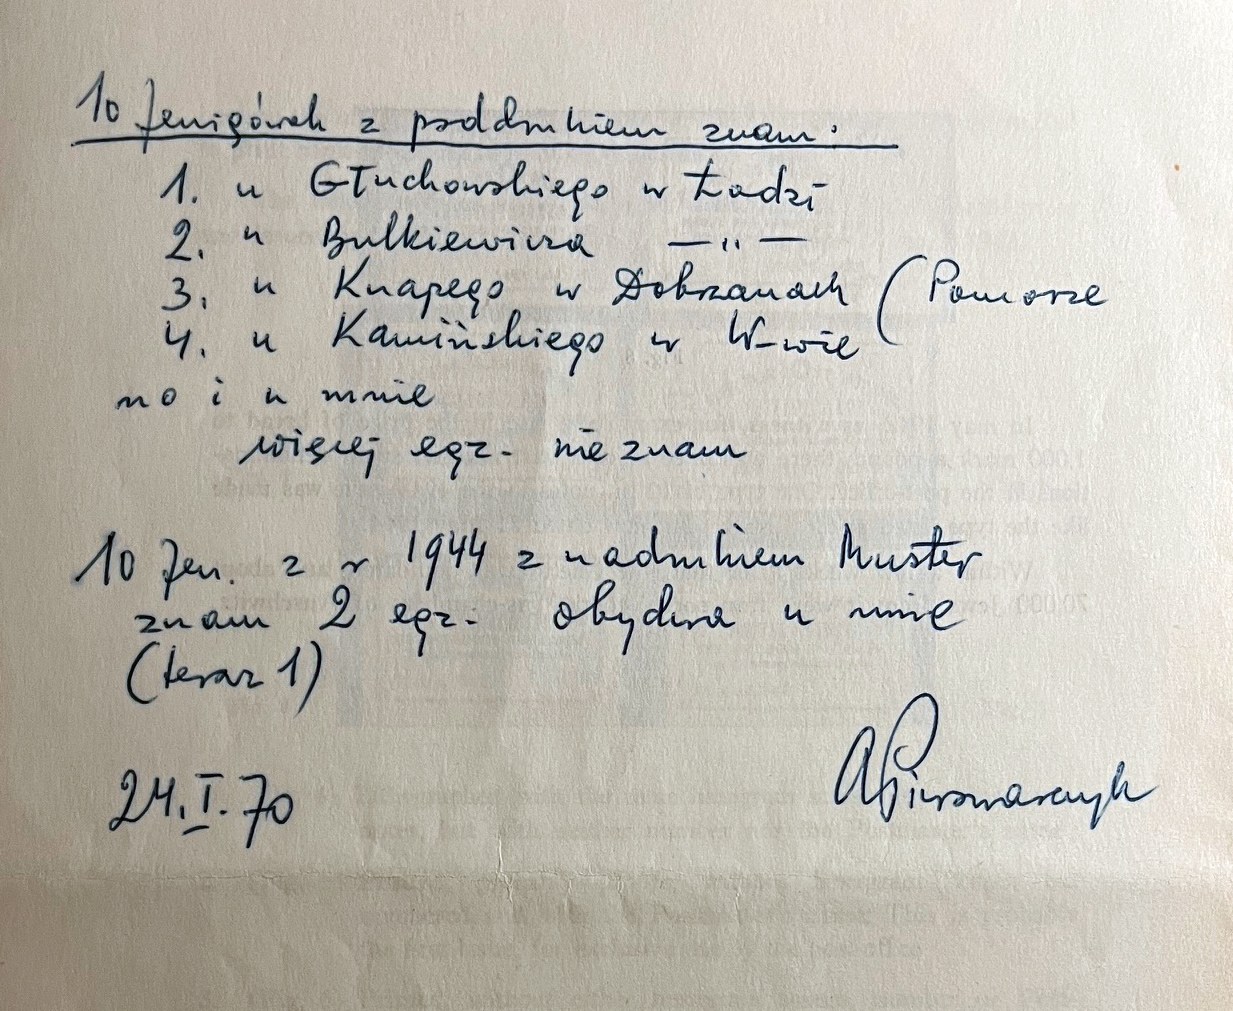 10 fenigówek z poddrukiem znam:
1. u Głuchowskiego w Łodzi
2. u Bulkiewicza —"—
3. u Knapego w Dobrzanach (Pomorze
4. u Kamińskiego w W-wie
no i u mnie
więcej egz. nie znam
10 fen. z r 1944 z nadrukiem Muster
znam 2 egz. obydwa u mnie
(teraz 1)
24.I.70